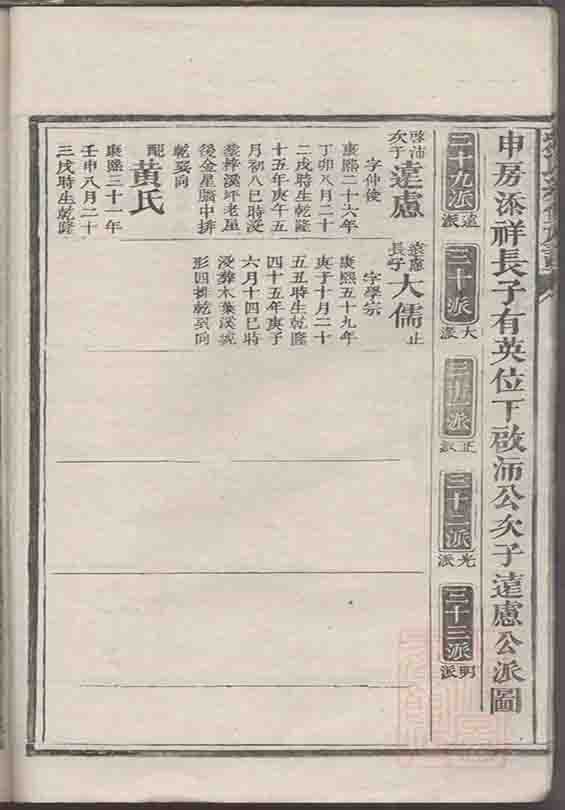 申房添祥長子有英位下啟沛公次子遠慮公派圖
二十九派 遠派
三十派 大派
三十一派 正派
三十二派 光派
三十三派 明派
啓沛次子 遠慮
字仲俊
康熙二十六年
丁卯八月二十
二戌時生乾隆
十五年庚午五
月初八巳時沒
葬梓溪坪老屋
後金星腦中排
乾巽向
配黃氏
康熙三十一年
壬申八月二十
三戌時生乾隆
遠慮長子 大儒 止
字學宗
康熙五十九年
庚子十月二十
五丑時生乾隆
四十五年庚子
六月十四巳時
沒葬木葉溪虎
形四排乾巽向